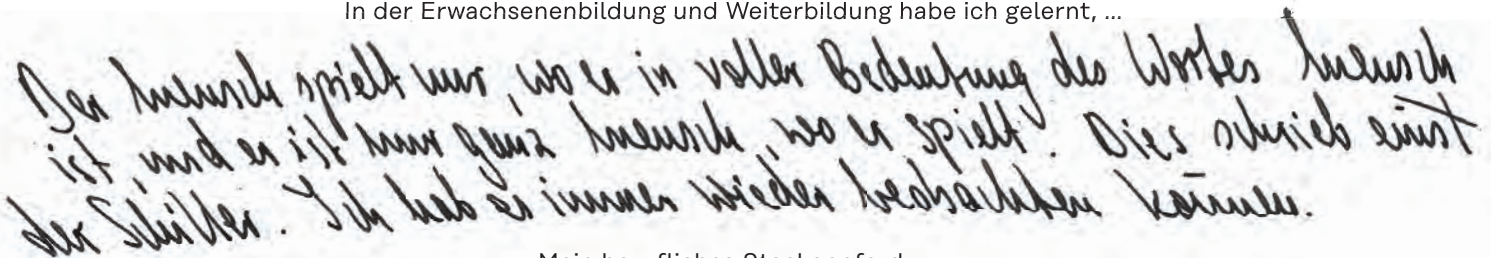 In der Erwachsenenbildung und Weiterbildung habe ich gelernt, ...
Der Mensch spielt nur, wo er in voller Bedeutung des Wortes Mensch
ist, und er ist nur ganz Mensch, wo er spielt. Dies schrieb einst
der Schiller. Ich hab es immer wieder beobachten können.